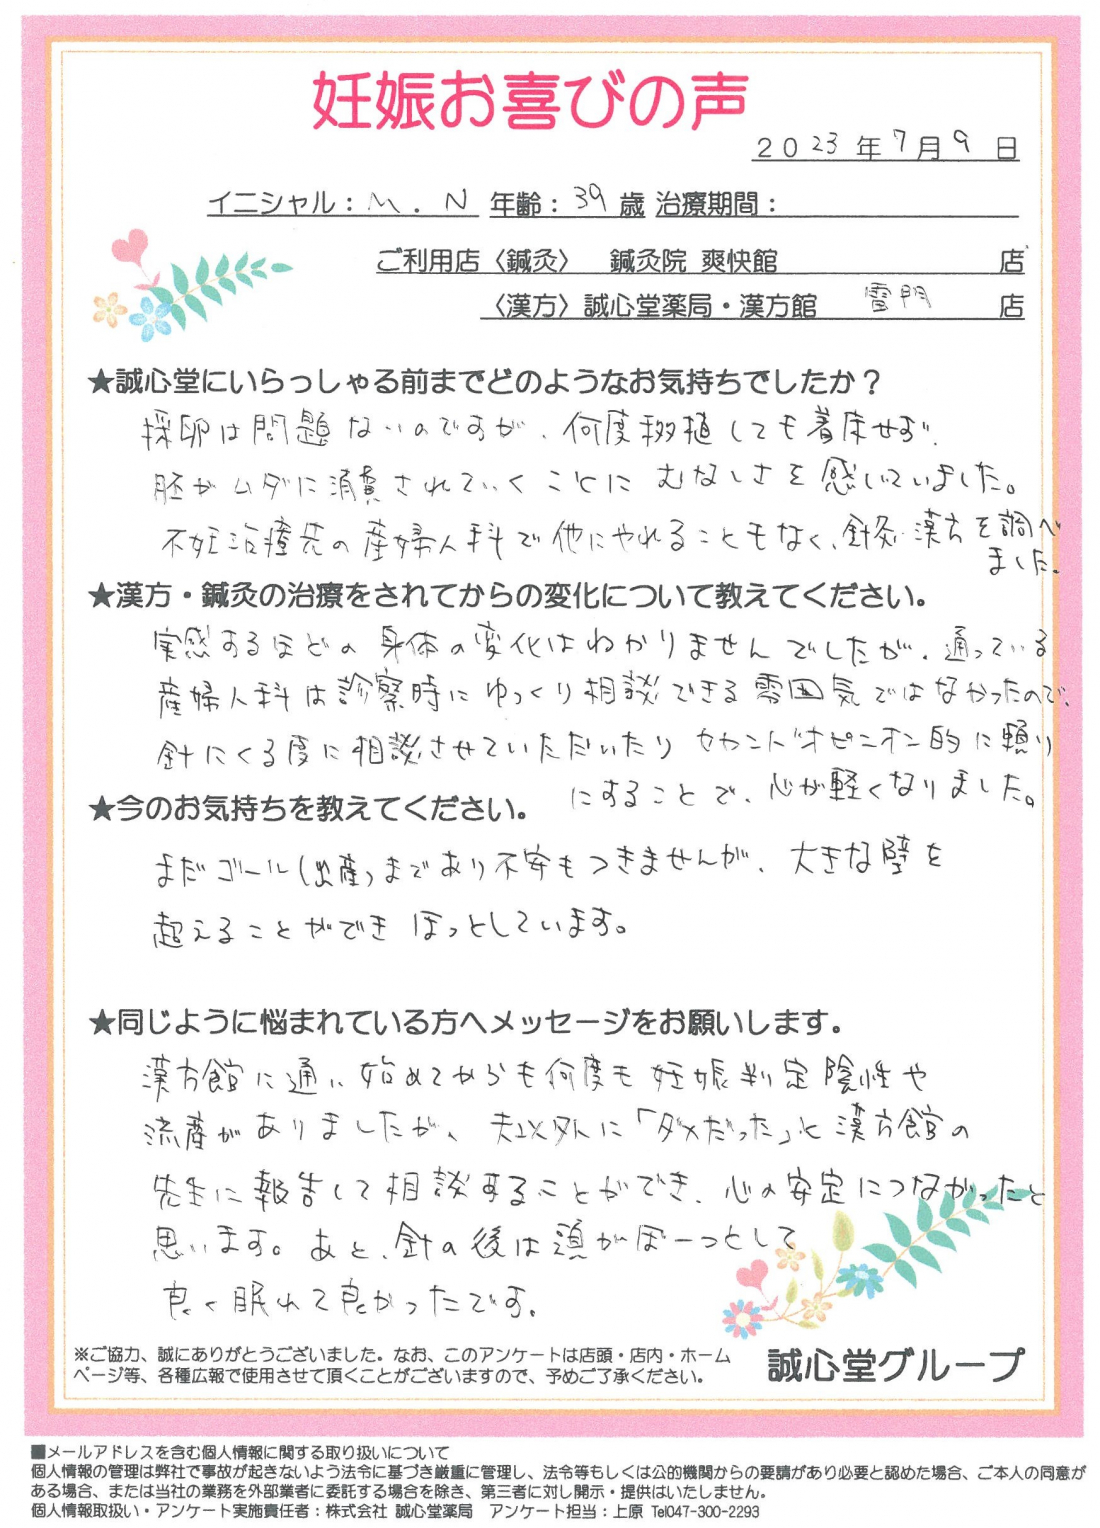 妊娠お喜びの声
2023年7月9日
イニシャル：M.N 年齢：39歳 治療期間：
ご利用店〈鍼灸〉 鍼灸院 爽快館 店
〈漢方〉誠心堂薬局・漢方館 雷門 店
★誠心堂にいらっしゃる前までどのようなお気持ちでしたか？
採卵は問題ないのですが、何度移植しても着床せず、
胚がムダに消費されていくことにむなしさを感じていました。
不妊治療先の産婦人科で他にやれることもなく、針灸・漢方を調べ
ました。
★漢方・鍼灸の治療をされてからの変化について教えてください。
実感するほどの身体の変化はわかりませんでしたが、通っている
産婦人科は診察時にゆっくり相談できる雰囲気ではなかったので、
針にくる度に相談させていただいたりセカンドオピニオン的に頼り
にすることで、心が軽くなりました。
★今のお気持ちを教えてください。
まだゴール(出産)まであり不安もつきませんが、大きな壁を
超えることができほっとしています。
★同じように悩まれている方へメッセージをお願いします。
漢方館に通い始めてからも何度も妊娠判定陰性や
流産がありましたが、夫以外に「ダメだった」と漢方館の
先生に報告して相談することができ、心の安定につながったと
思います。あと、針の後は頭がぼーっとして
良く眠れて良かったです。
※ご協力、誠にありがとうございました。なお、このアンケートは店頭・店内・ホーム
ページ等、各種広報で使用させて頂くことがございますので、予めご了承ください。
誠心堂グループ
■メールアドレスを含む個人情報に関する取り扱いについて
個人情報の管理は弊社で事故が起きないよう法令に基づき厳重に管理し、法令等もしくは公的機関からの要請があり必要と認めた場合、ご本人の同意が
ある場合、または当社の業務を外部業者に委託する場合を除き、第三者に対し開示・提供はいたしません。
個人情報取扱い・アンケート実施責任者：株式会社 誠心堂薬局 アンケート担当：上原 Tel047-300-2293